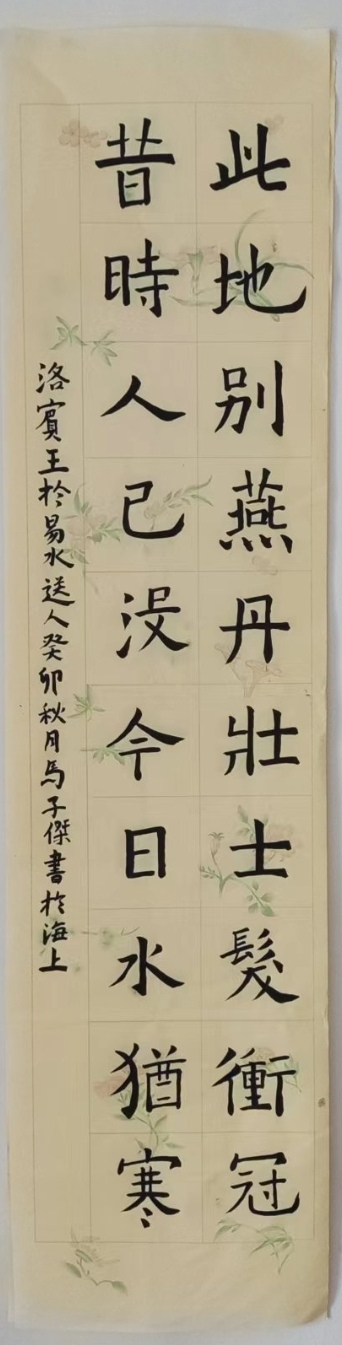 此地别燕丹壯士髮衝冠
昔時人已没今日水猶寒
洛賓王於易水送人癸卯秋月馬子傑書於海上